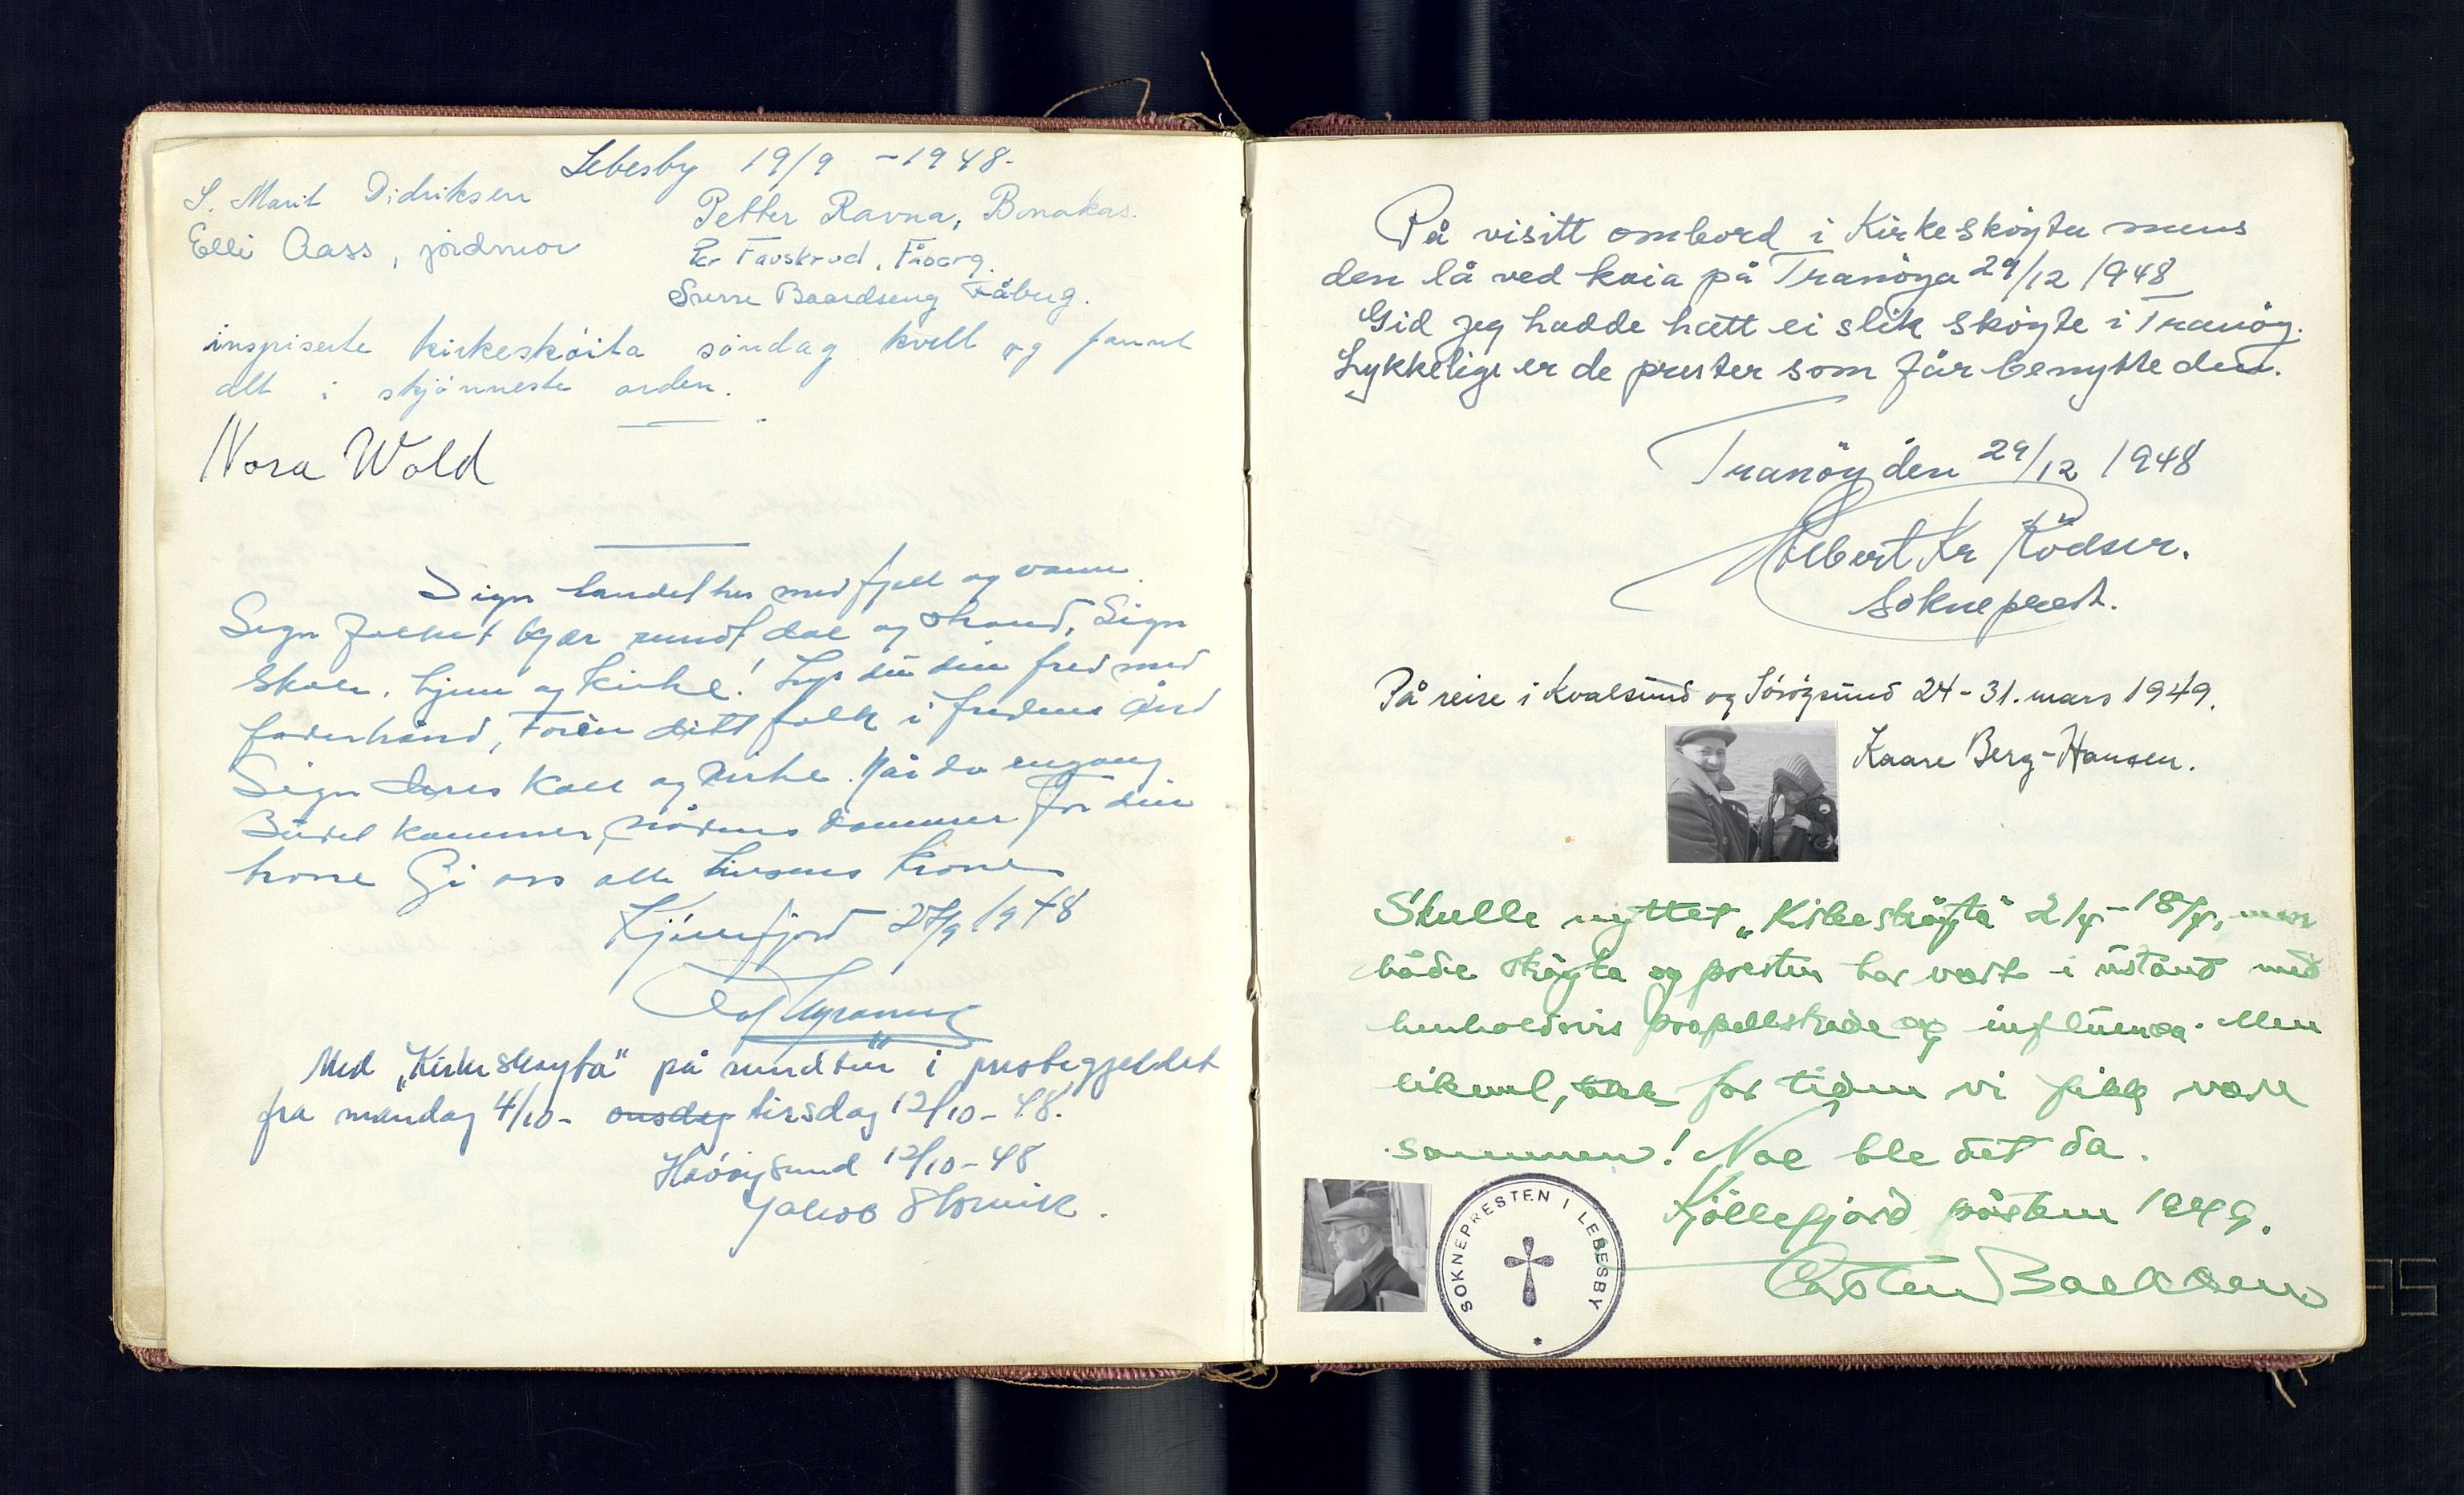 Lebesby 19/9 - 1948.
S. Marit Didriksen
Elli Aass, jordmor
Petter Ravna, Bonakas.
Per Fauskrud, Fåberg.
Sverre Baardseng Fåberg.
inspiserte kirkeskøita søndag kvell og fannt
alt i skjønneste orden.
Nora Wold
Sign landet her med fjell og vann
Sign folket kjær rundt dal og strand, Sign
Skole, hjem og kirke! Lys du din fred med
faderhånd, Foren ditt folk i fredens ånd
Sign deres kall og virke. Når da engang
Budet kommer, nådens dommer For din
trone Gi oss alle livsens krone
Kjøllefjord 27/9 1948
Med „Kirkeskøyta" på rundtur i prestegjeldet
fra mandag 4/10 - onsdag tirsdag 12/10 - 48.
Havøysund 12/10 - 48
Jakob
På visitt ombord i Kirkeskøyta mens
den lå ved kaia på Tranøya 29/12 1948
Gid jeg hadde hatt ei slik skøyte i Tranøy.
Lykkelige er de prester som får benytte den.
Tranöy den 29/12 1948
Albert Kr Rödser.
Sokneprest.
På reise i Kvalsund og Sørøysund 24 - 31. mars 1949.
Kaare Berg-Hansen.
Skulle nyttet „Kirkeskøyta" 2/4 - 18/4, men
både skøyta og presten har vært i ustand med
henholdsvis propellskade og influensa. Men
likevel, takk for tiden vi fikk være
sammen! Noe ble det da.
Kjöllefjord påsken 1949.
SOKNEPRESTEN I LEBESBY